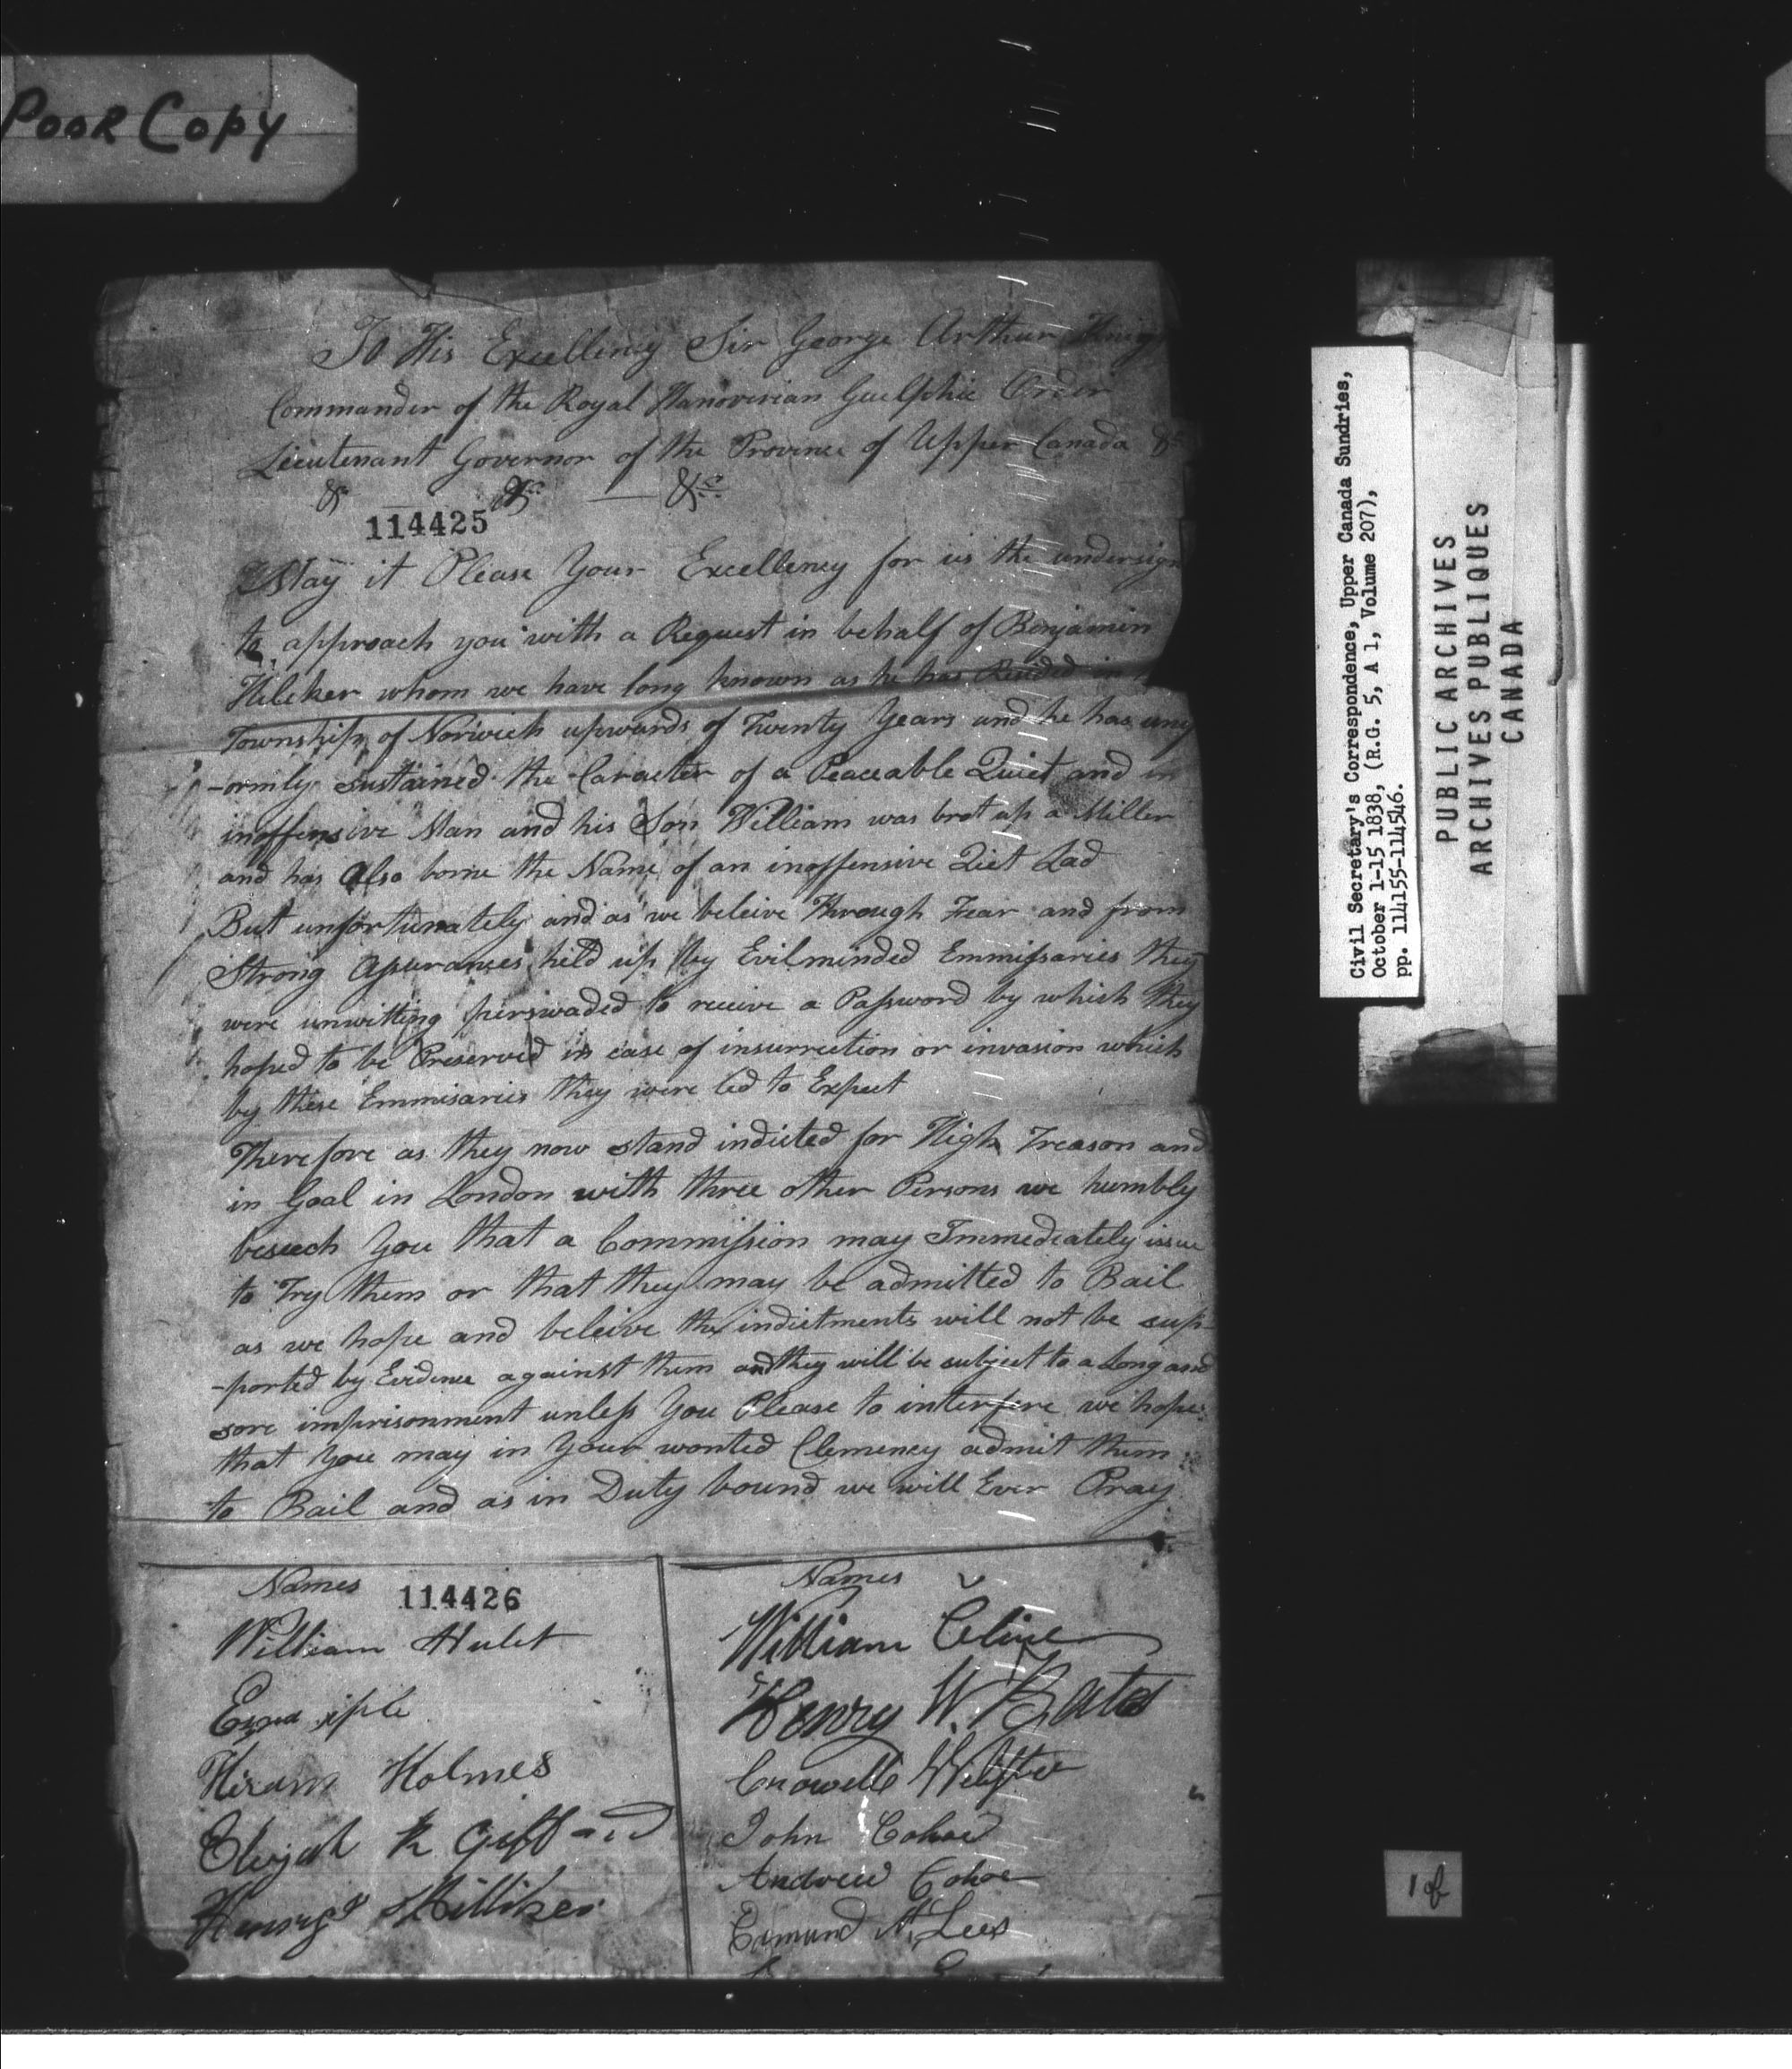 Poor Copy
To His Excellency Sir George Arthur
Commander of the Royal Hanoverian Guelphic Order
Lieutenant Governor of the Province of Upper Canada &c
&c &c &c
114425
May it Please Your Excellency for us the undersign
to approach you with a Request in behalf of Benjamin
whom we have long known as he has Resided in
Township of Norwich upwards of Twenty Years and he has uny
-ormly sustained the Caracter of a Peaceable Quiet and in
inoffensive Man and his Son William was brot up a Miller
and has also borne the Name of an inoffensive Qiet Lad
But unfortunately and as we beleive Through Fear and from
Strong Assurances held up by Evilminded Emmissaries they
were unwitting perswaded to receive a Password by which they
hoped to be Preserved in case of insurrection or invasion which
by these Emmisaries they were led to Expect
Therefore as they now stand indicted for High Treason and
in Goal in London with three other Persons we humbly
beseech You that a Commission may Immediately issue
to Try them or that they may be admitted to Bail
as we hope and beleive the indictments will not be sup-
-ported by Evidence against them and they will be subject to a Long and
sore imprisonment unless You Please to interfere we hope
that You may in Your wonted Clemency admit them
to Bail and as in Duty bound we will Ever Pray
Names 114426
William Hulet
Hiram Holmes
Elijah
Henry Hilliker
Names
William Cline
Henry W. Bates
Crowell Webster
John Cohoe
Andrew Cohoe
Edmund Lees
Civil Secretary's Correspondence, Upper Canada Sundries,
October 1-15 1838, (R.G. 5, A 1, Volume 207),
pp. 114155-114546.
PUBLIC ARCHIVES
ARCHIVES PUBLIQUES
CANADA